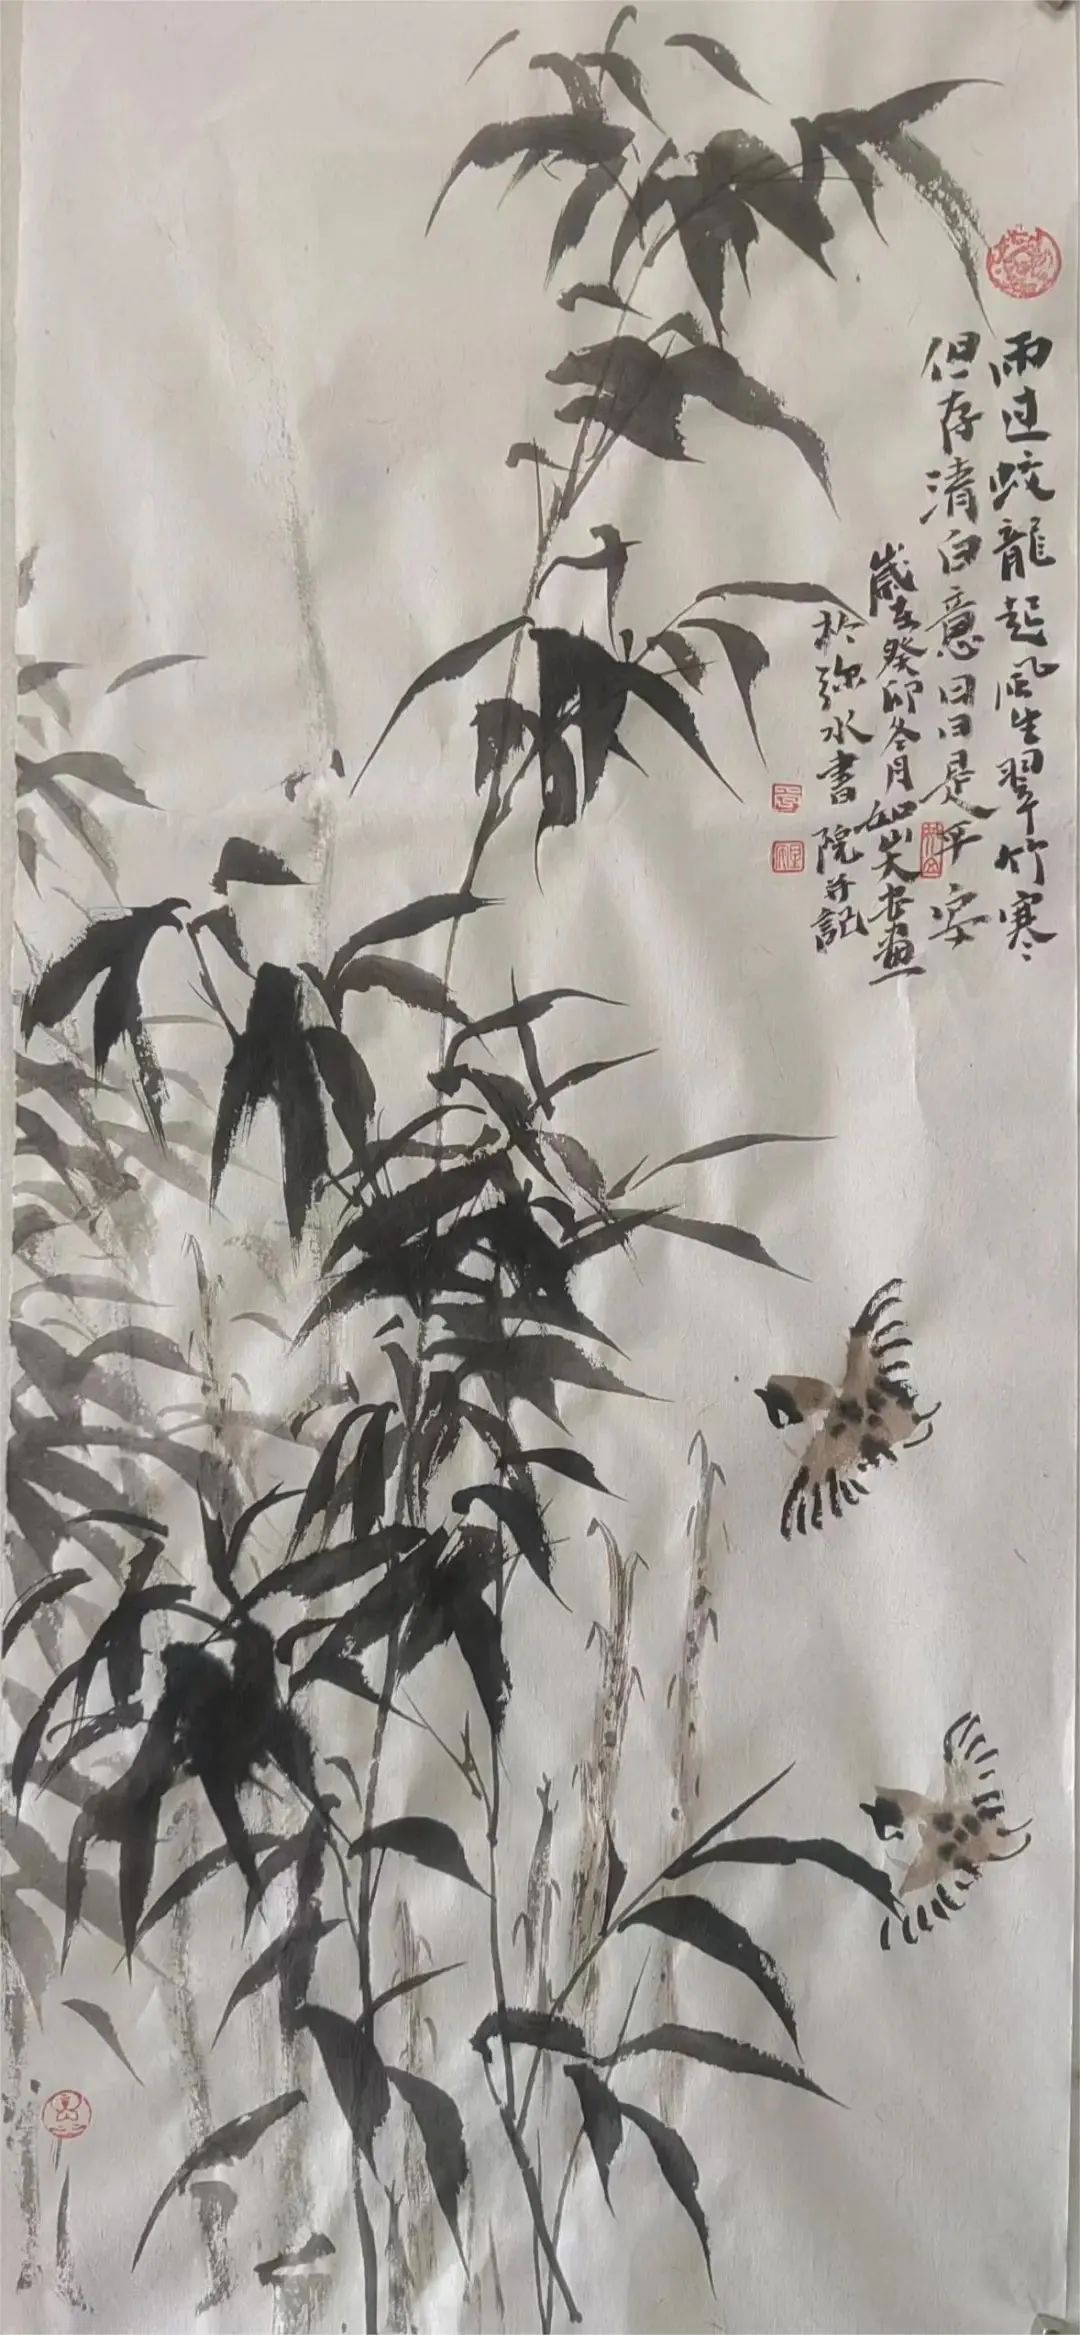 雨过蛟龍起风生翠竹寒
但存清白意日日是平安
歲在癸卯冬月如笑书畫
於弥水書院并記